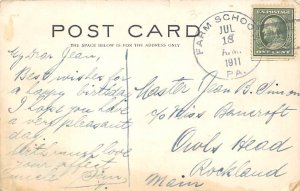 POST CARD
THE SPACE BELOW IS FOR THE ADDRESS ONLY
FARM SCHOOL
JUL
18
A.M.
1911
PA.
My dear Jean,
Best wishes for
a happy birthday
I hope you have
a very pleasant
day.
With much love
your affect
Master Jean B.
c/o Miss Bancroft
Owls Head
Rockland
Main